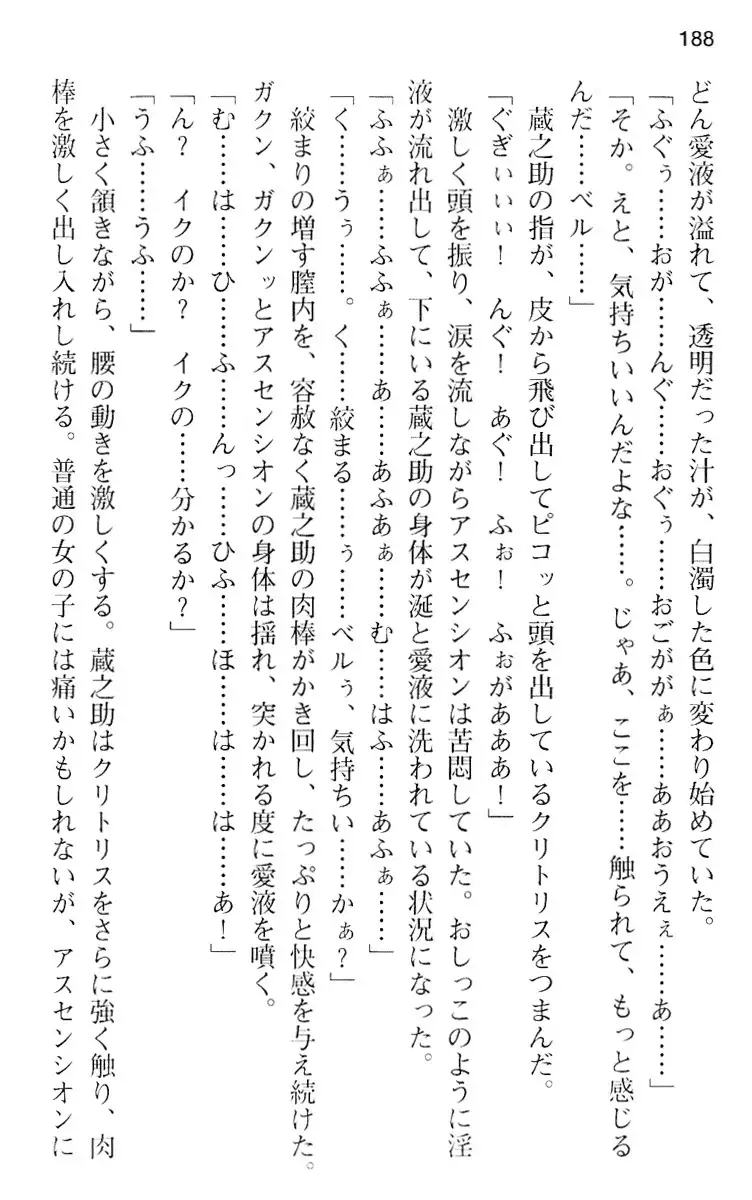 188
どん愛液が溢れて、透明だった汁が、白濁した色に変わり始めていた。
「ふぐぅ……おが……んぐ……おぐぅ……おごががぁ……ああおうえぇ……あ……」
「そか。えと、気持ちいいんだよな……。じゃあ、ここを……触られて、もっと感じる
んだ……ベル……」
蔵之助の指が、皮から飛び出してピコッと頭を出しているクリトリスをつまんだ。
「ぐぎぃぃぃ！　んぐ！　あぐ！　ふぉ！　ふぉがあああ！」
激しく頭を振り、涙を流しながらアスセンシオンは苦悶していた。おしっこのように淫
液が流れ出して、下にいる蔵之助の身体が涎と愛液に洗われている状況になった。
「ふふぁ……ふふぁ……あ……あふあぁ……む……はふ……あふぁ……」
「く……うぅ……。く……絞まる……ぅ……ベルぅ、気持ちい……かぁ？」
絞まりの増す膣内を、容赦なく蔵之助の肉棒がかき回し、たっぷりと快感を与え続けた。
ガクン、ガクンッとアスセンシオンの身体は揺れ、突かれる度に愛液を噴く。
「む……は……ひ……ふ……んっ……ひふ……ほ……は……は……あ！」
「ん？　イクのか？　イクの……分かるか？」
「うふ……うふ……」
小さく頷きながら、腰の動きを激しくする。蔵之助はクリトリスをさらに強く触り、肉
棒を激しく出し入れし続ける。普通の女の子には痛いかもしれないが、アスセンシオンに